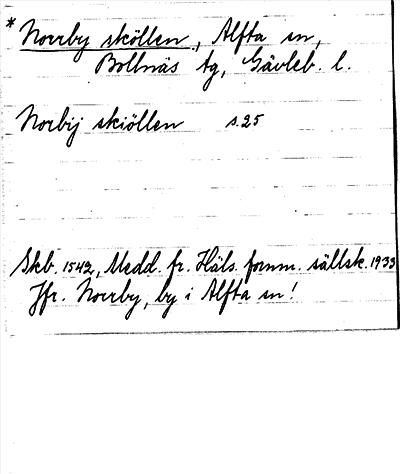 * Norrby sköllen, Alfta sn,
Bollnäs tg, Gävleb. l.
Norbij skiöllen s. 25
Skb. 1542, Medd. fr. Häls. fornm. sällsk. 1933
Jfr. Norrby, by i Alfta sn!